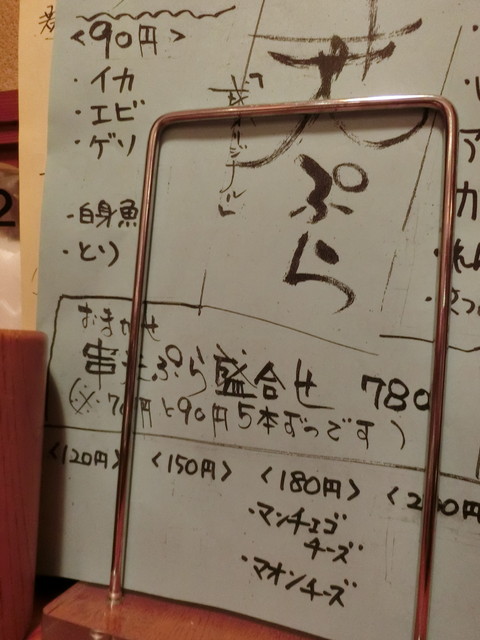 <90円>
・イカ
・エビ
・ゲソ
・白身魚
・とり
ぷら
おまかせ
串天ぷら盛合せ 780
(※70円と90円5本ずつです)
<120円> <150円> <180円>
・マンチェゴ
チーズ
・マオンチーズ
2